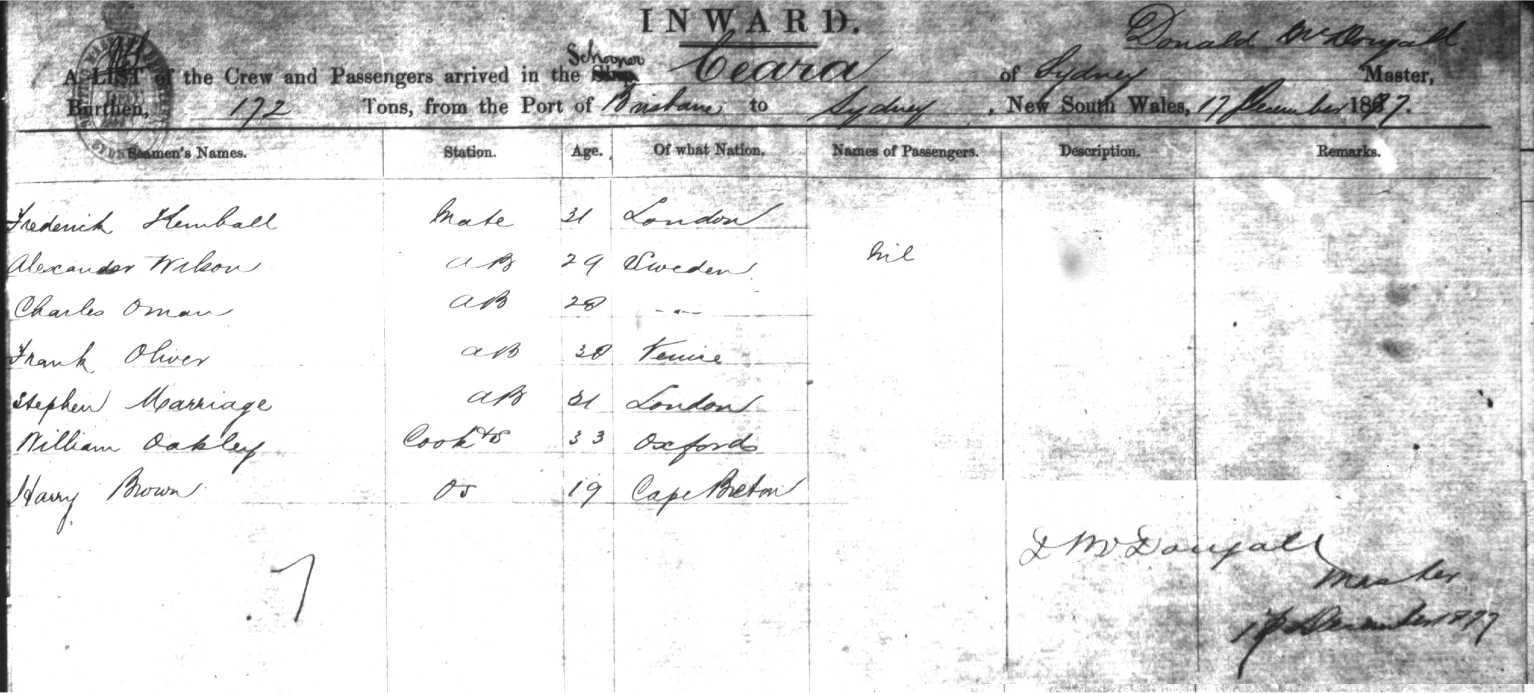 INWARD.
Donald McDougall
Schooner
A LIST of the Crew and Passengers arrived in the Ship Ceara of Sydney Master,
Burthen, 172 Tons, from the Port of Brisbane to Sydney, New South Wales, 17 December 1877.
Seamen's Names. Station. Age. Of what Nation. Names of Passengers. Description. Remarks.
Frederick Kemball Mate 31 London
Alexander Wilson AB 29 Sweden Nil
Charles Oman AB 28 -"-
Frank Oliver AB 38 Venice
Stephen Marriage AB 31 London
William Oakley Cook &S 33 Oxford
Harry Brown OS 19 Cape Breton
D McDougall
Master
17 December 1877
7